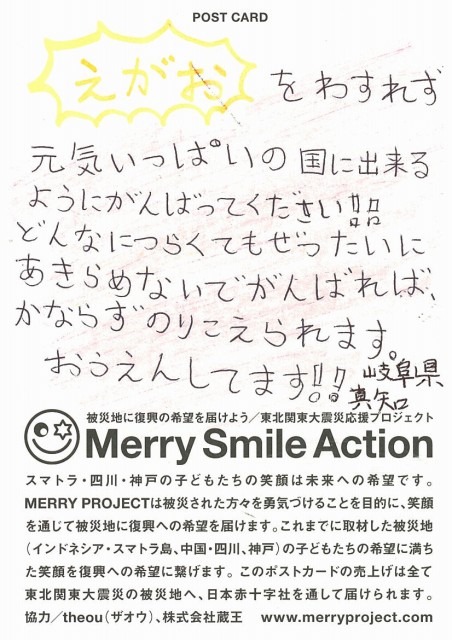 POST CARD
えがお をわすれず
元気いっぱいの国に出来る
ようにがんばってください!!
どんなにつらくてもぜったいに
あきらめないでがんばれば、
かならずのりこえられます。
おうえんしてます!! 岐阜県
真知
被災地に復興の希望を届けよう/東北関東大震災応援プロジェクト
Merry Smile Action
スマトラ・四川・神戸の子どもたちの笑顔は未来への希望です。
MERRY PROJECTは被災された方々を勇気づけることを目的に、笑顔
を通じて被災地に復興への希望を届けます。これまでに取材した被災地
(インドネシア・スマトラ島、中国・四川、神戸)の子どもたちの希望に満ち
た笑顔を復興への希望に繋げます。このポストカードの売上げは全て
東北関東大震災の被災地へ、日本赤十字社を通して届けられます。
協力/theou(ザオウ)、株式会社蔵王 www.merryproject.com